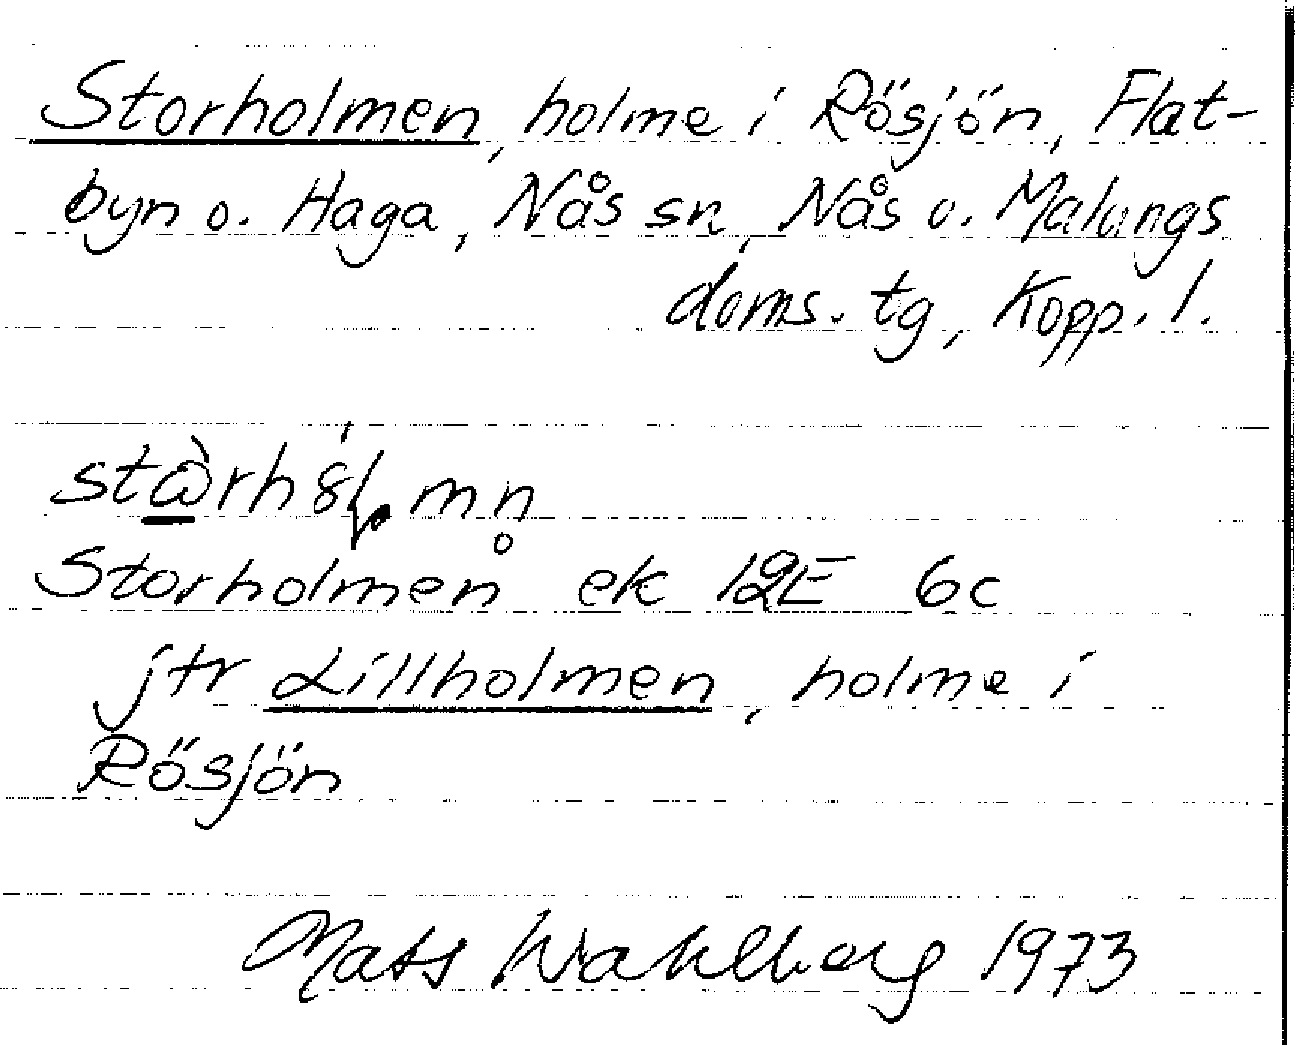 Storholmen, holme i Rösjön, Flat-
byn o. Haga, Nås sn, Nås o. Malungs
doms. tg, Kopp. l.
Storholmen ek 12E 6c
jtr Lillholmen, holme i
Rösjön
Mats Wahlberg 1973